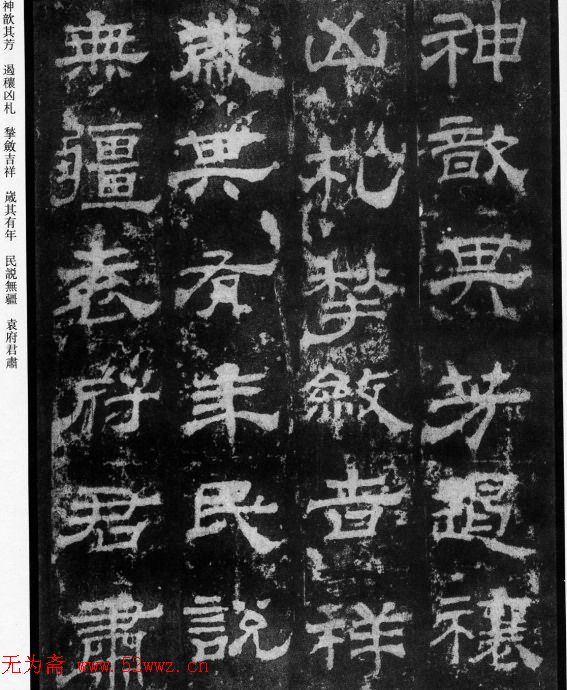 神歆其芳遏禳
凶札揫斂吉祥
歲其有年民說
無疆袁府君肅
神歆其芳　遏穰凶札　揫斂吉祥　歲其有年　民説無疆　袁府君肅
无为斋 www.52wwz.cn